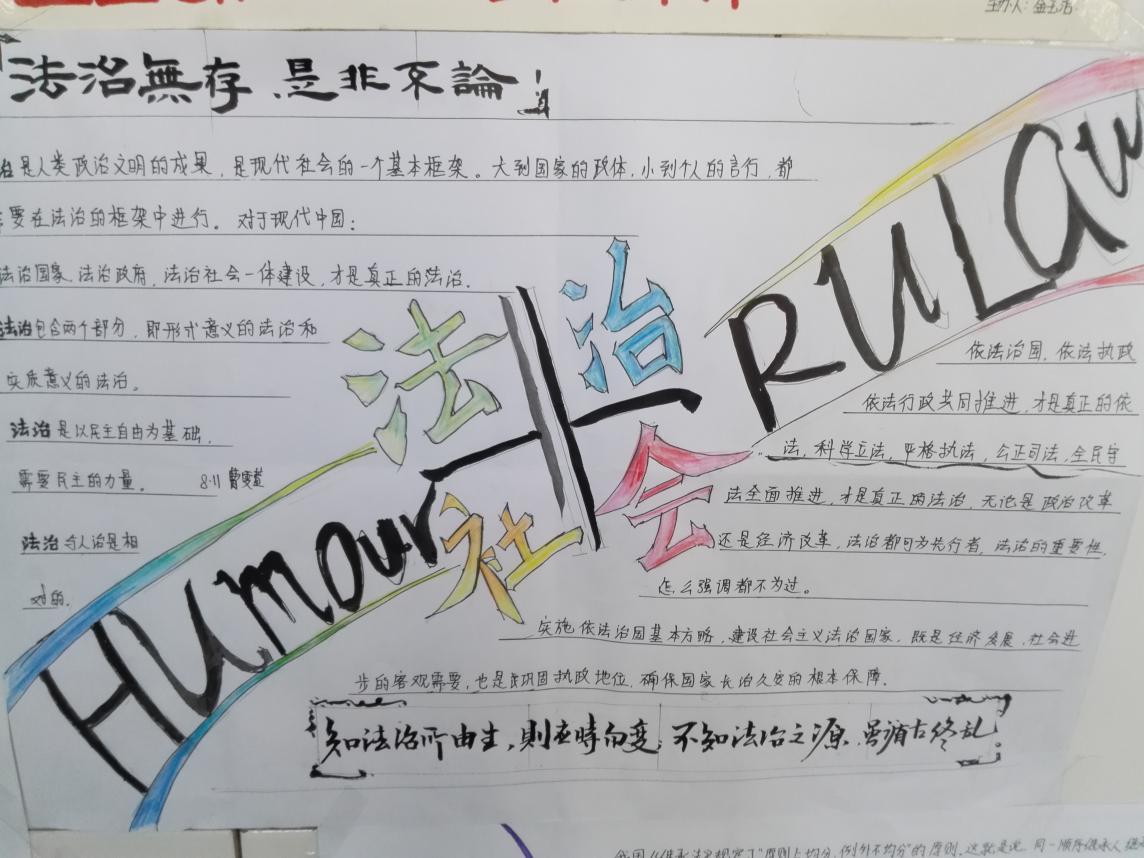 主办人:金玉洁
法治無存,是非不論!
治是人类政治文明的成果,是现代社会的一个基本框架。大到国家的政体,小到个人的言行,都
需要在法治的框架中进行。对于现代中国:
法治国家、法治政府,法治社会一体建设,才是真正的法治.
法治包含两个部分,即形式意义的法治和
实质意义的法治。
法治是以民主自由为基础,
需要民主的力量。 8·11
法治与人治是相
对的.
法治
社会
Humour
RULAw
依法治国,依法执政
依法行政共同推进,才是真正的依
法,科学立法,严格执法,公正司法,全民守
法全面推进,才是真正的法治,无论是政治改革
还是经济改革,法治都可为先行者,法治的重要性,
怎么强调都不为过。
实施依法治国基本方略,建设社会主义法治国家,既是经济发展,社会进
步的客观需要,也是巩固执政地位,确保国家长治久安的根本保障.
知法治所由生,則应時而变,不知法治之源,虽循古终乱
我国《继承法》规定了“原则上均分,例外不均分”的原则,这就是说,同一顺序继承人继